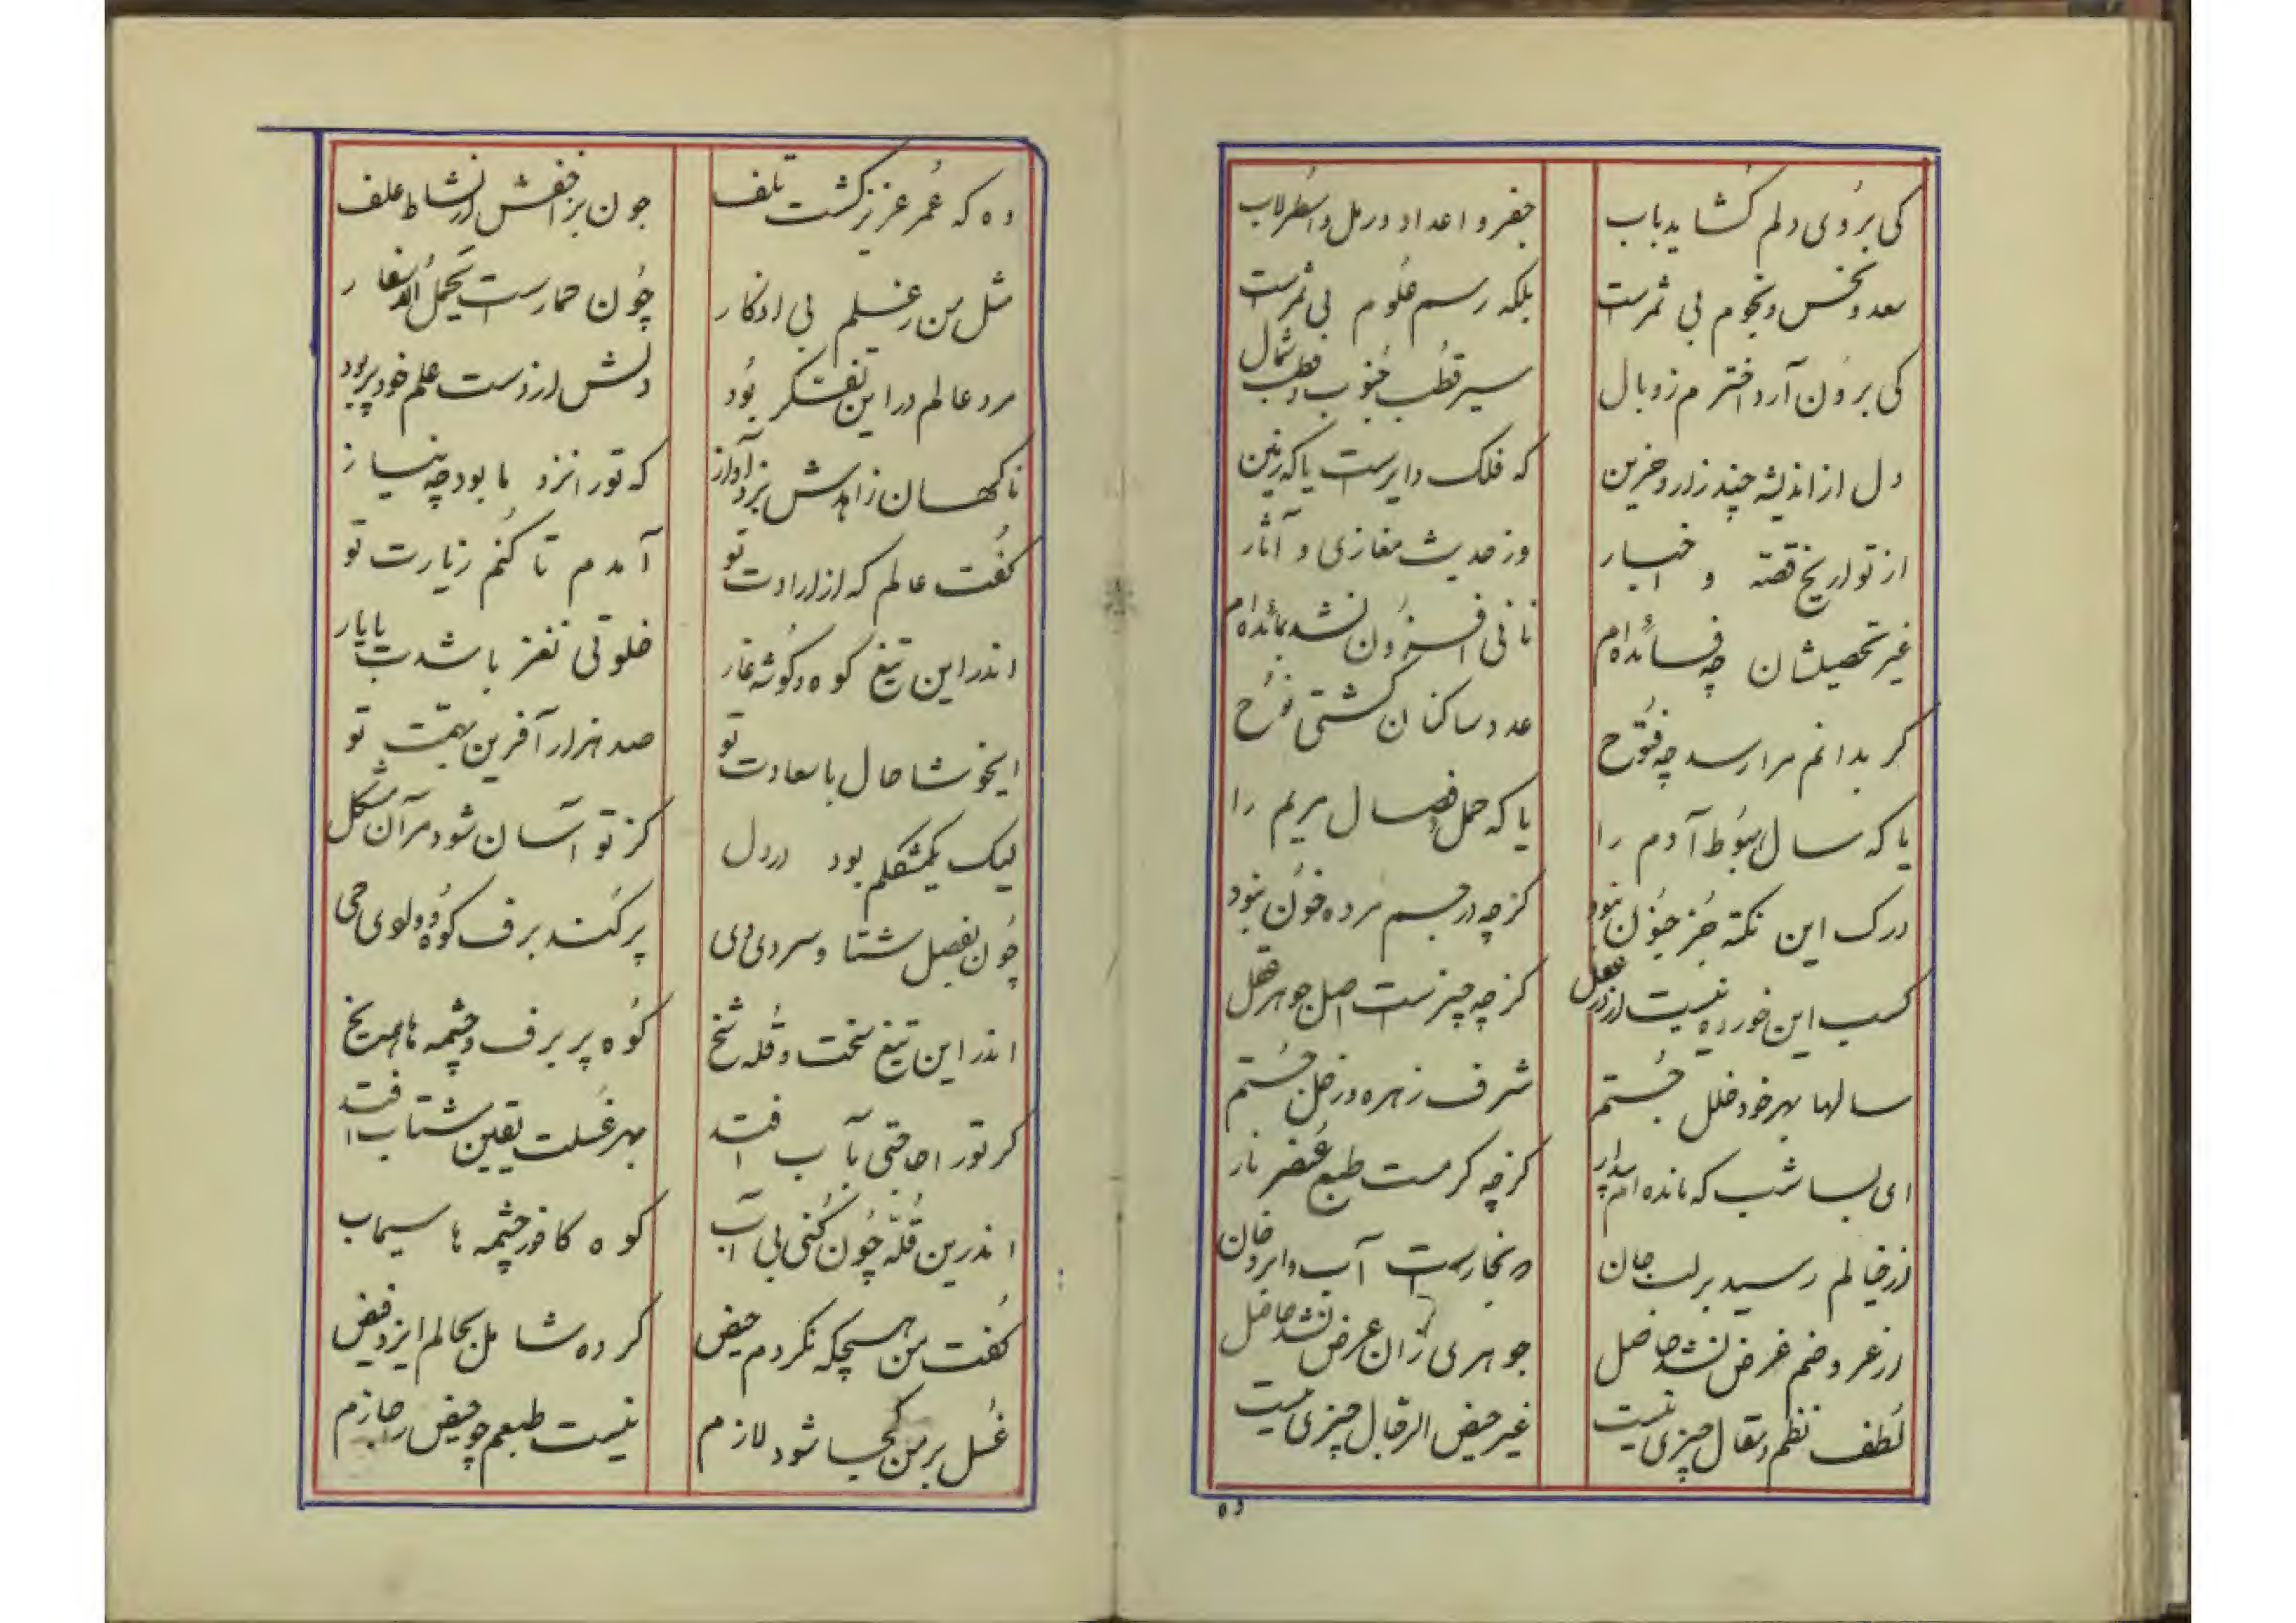 کی بروی دلم کشاید باب
جفر و اعداد و رمل و اسطرلاب
سعد و نحس و نجوم بی ثمرست
بلکه رسم علوم بی ثمرست
کی برون آرد اخترم ز وبال
سیر قطب جنوب و قطب شمال
دل از اندیشه چند زار و حزین
که فلک دایرست یا که زمین
از تواریخ قصه و اخبار
وز حدیث مغازی و آثار
غیر تحصیلشان چه فائده‌ام
نانی افزون نشد بمائده‌ام
کر بدانم مرا رسد چه فتوح
عدد ساکنان کشتی نوح
یا که سال هبوط آدم را
یا که حمل و فصال مریم را
درک این نکته جز جنون نبود
کز چه در جسم مرده خون نبود
کسب این خورده نیست از در عقل
کز چه چیزست اصل جوهر عقل
سالها بهر خود خلل جستم
شرف زهره و زحل جستم
ای بسا شب که مانده‌ام بیدار
کز چه کرمست طبع عنصر نار
از خیالم رسید بر لب جان
بخارست آب و ابر دخان
از عروضم غرض نشد حاصل
جوهری زان عرض نشد حاصل
لطف نظم و مقال چیزی نیست
غیر حیض الرجال چیزی نیست
ده
وه که عمر عزیز کشت تلف
جون بز اخفش از نشاط علف
مثل من ز علم بی اذکار
چون حمارست یحمل الاسفار
مرد عالم در این تفکر بود
دلش از دست علم خود پر بود
ناکهان زاهدش بزد آواز
که تو را نزد ما بود چه نیاز
کفت عالم که از ارادت تو
آمدم تا کنم زیارت تو
اندر این تیغ کوه و کوشه غار
خلوتی نغز باشدت با یار
ایخوشا حال با سعادت تو
صد هزار آفرین بهمت تو
لیک یکمشکلم بود در دل
کز تو آسان شود مر آن مشکل
چون بفصل شتا و سردی دی
پر کند برف کوه و وادی حی
اندر این تیغ سخت و قله شخ
کوه پر برف و چشمه ها همه یخ
کر تو را حاجتی بآب افتد
بهر غسلت یقین شتاب افتد
اندرین قله چون کنی بی آب
کوه کافور چشمه ها سیماب
کفت من هیچکه نکردم حیض
کرده شامل بحالم ایزد فیض
غسل بر من کجا شود لازم
نیست طبعم چو حیض را جازم